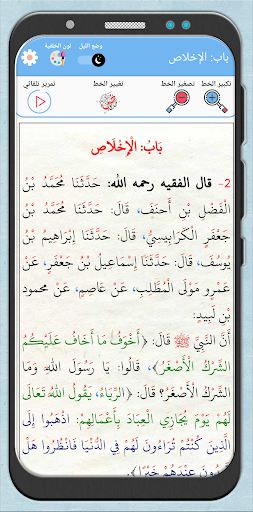 باب: الإخلاص
وضع الليل
لون الخلفية
تكبير الخط
تصغير الخط
تغيير الخط
تمرير تلقائي
بَابُ: الْإِخْلَاصِ
2- قال الفقيه رحمه الله: حَدَّثَنَا مُحَمَّدُ بْنُ
الْفَضْلِ بْنِ أَحْنَفَ، قَالَ: حَدَّثَنَا مُحَمَّدُ بْنُ
جَعْفَرٍ الْكَرَابِيسِيُّ، قَالَ: حَدَّثَنَا إِبْرَاهِيمُ بْنُ
يُوسُفَ، قَالَ: حَدَّثَنَا إِسْمَاعِيلُ بْنُ جَعْفَرٍ، عَنْ
عَمْرِو مَوْلَى الْمُطَّلِبِ، عَنْ عَاصِمٍ، عَنْ محمودِ
بْنِ لَبِيدٍ:
أَنَّ النَّبِيَّ ﷺ قَالَ: ﴿أَخْوَفُ مَا أَخَافُ عَلَيْكُمُ
الشِّرْكُ الْأَصْغَرُ﴾، قَالُوا: يَا رَسُولَ اللَّهِ وَمَا
الشِّرْكُ الْأَصْغَرُ؟ قَالَ: ﴿الرِّيَاءُ، يَقُولُ اللَّهُ تَعَالَى
لَهُمْ يَوْمَ يُجَازِي الْعِبَادَ بِأَعْمَالِهِمْ: اذْهَبُوا إِلَى
الَّذِينَ كُنْتُمْ تُرَاءُونَ لَهُمْ فِي الدُّنْيَا فَانْظُرُوا هَلْ
تَجِدُونَ عِنْدَهُمْ خَيْرًا﴾.